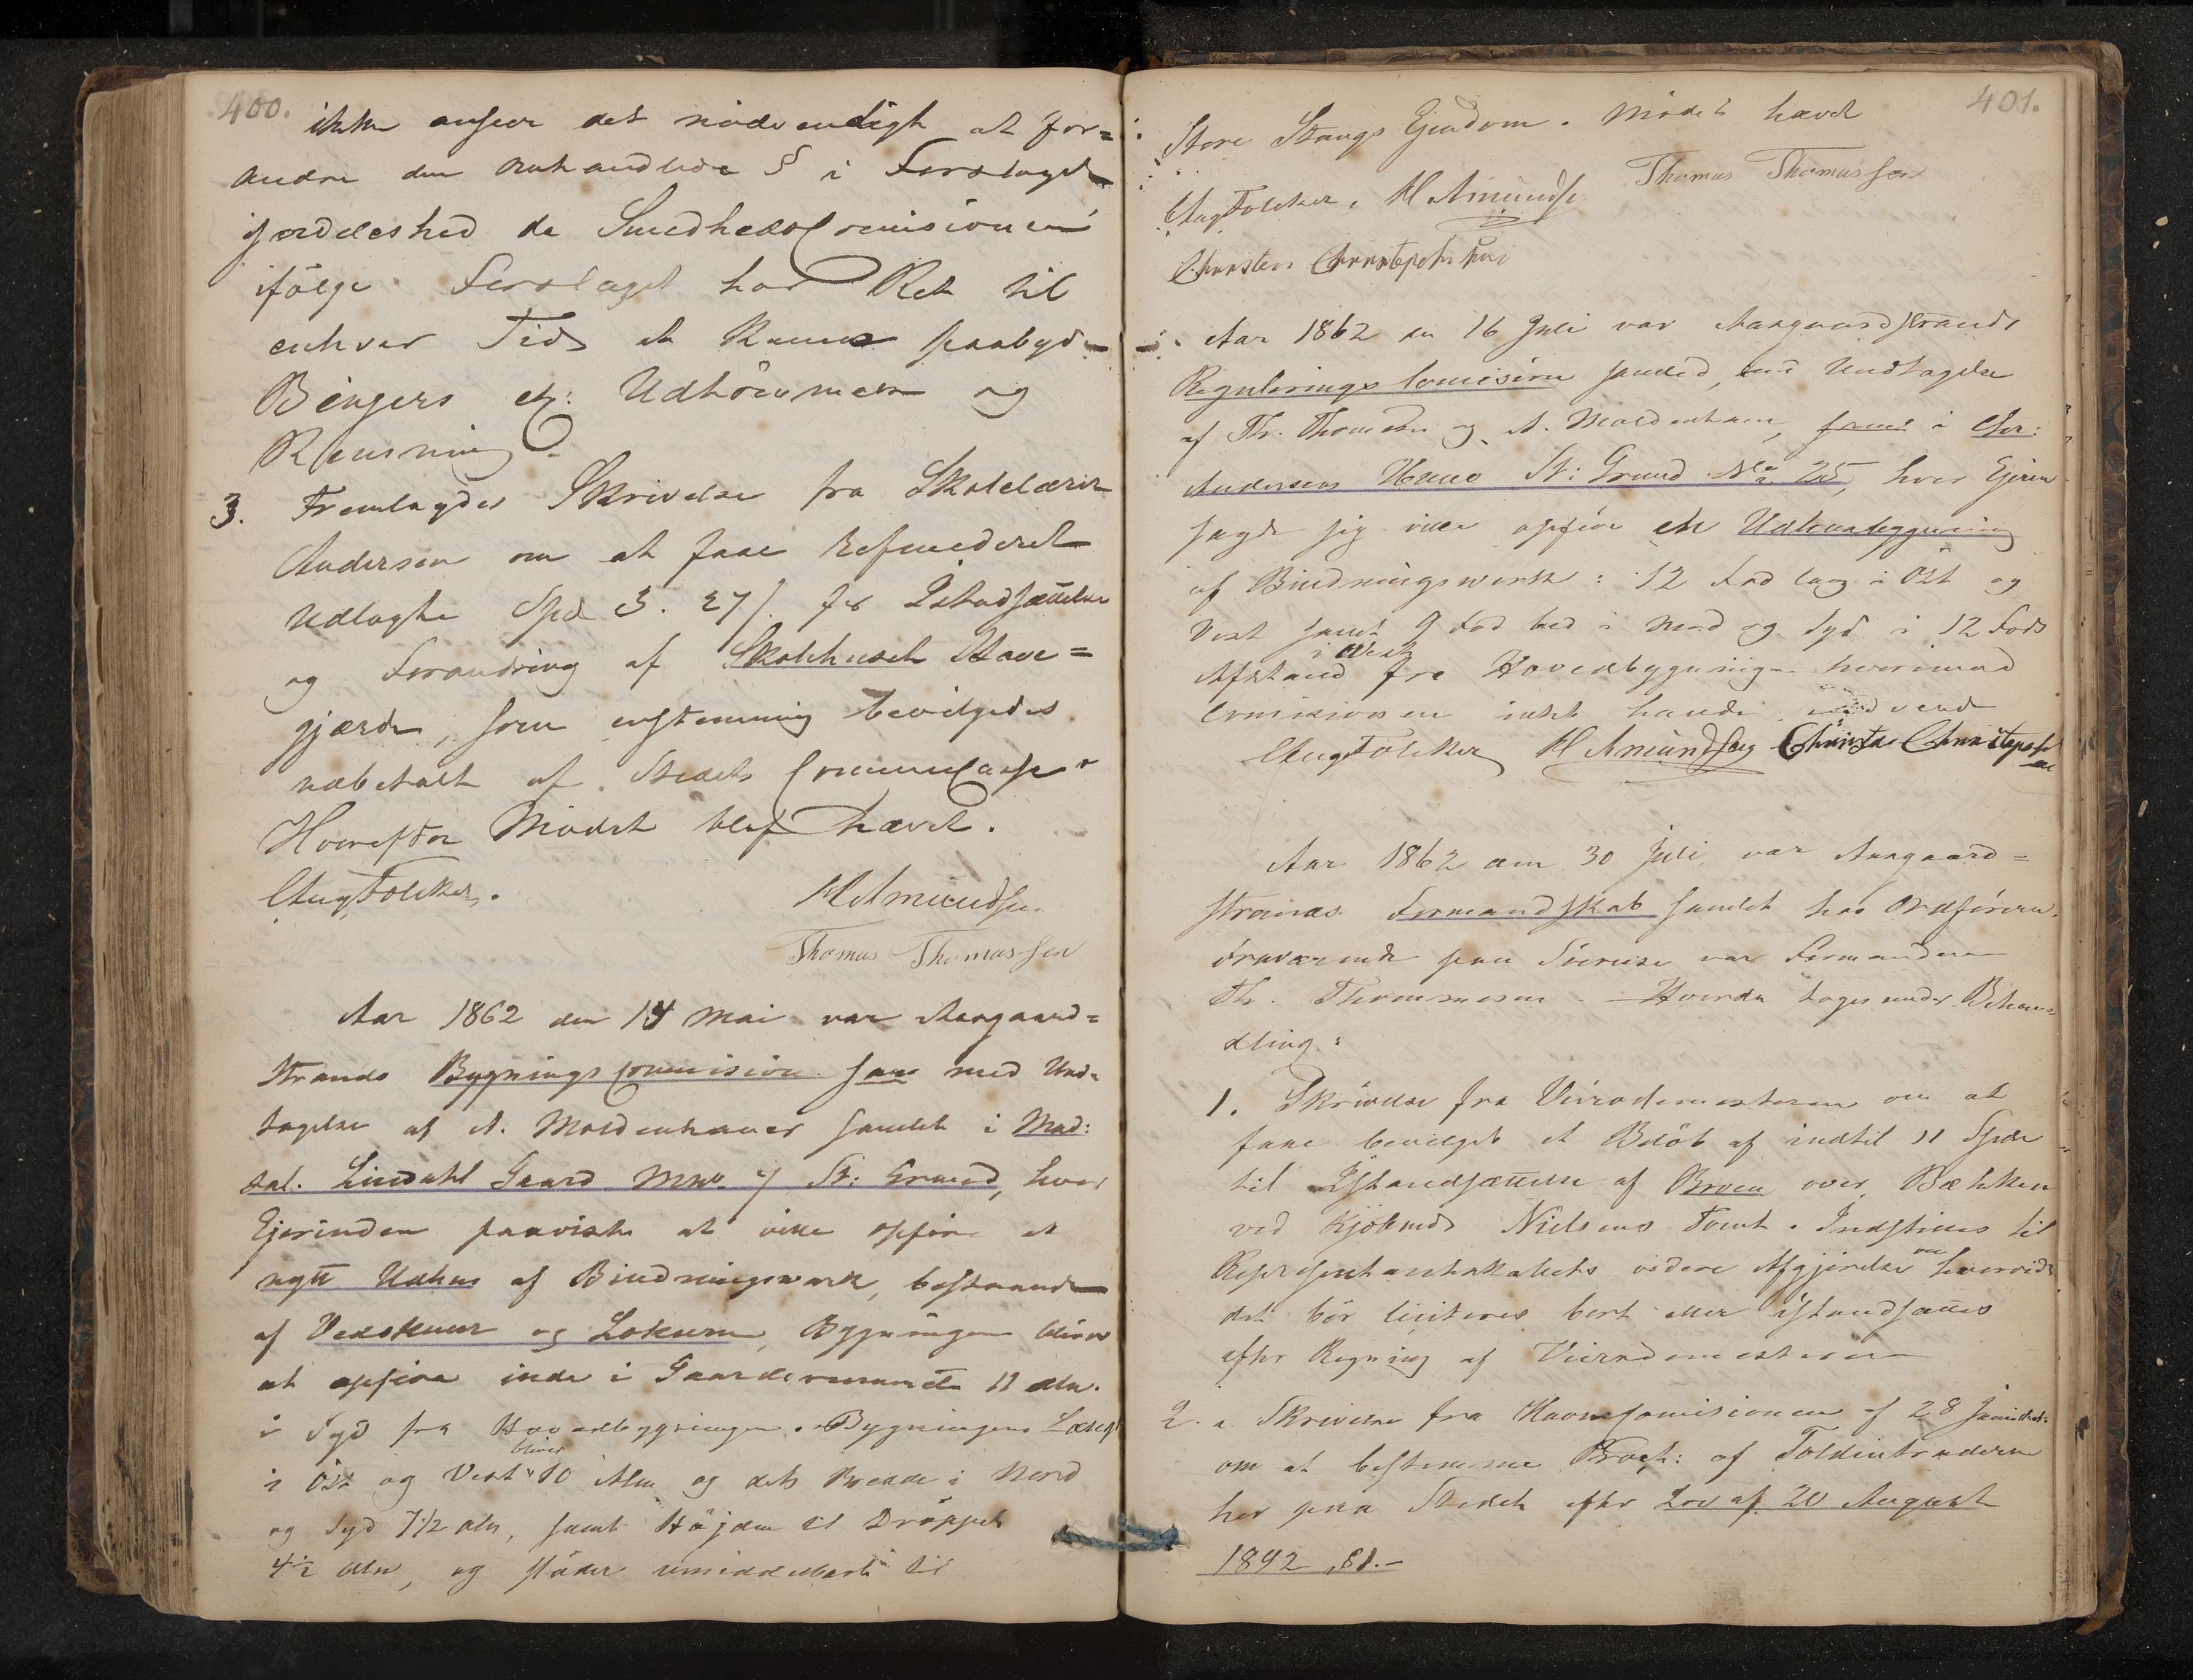 400.
ikke anseer det nødvendigt at for=
andre den omhandlede § i Forslaget
ifølge Forslaget har Ret til
enhver Tid at kunne paabyde
Bingers Udtømmen og
Rensning.
3. Fremlagdes Skrivelse fra Skolelærer
Andersen om at faae refunderet
Udlagte Spd 3. 27 for Istandsættelse
og Forandring af Skolehusets Have=
gjærde, som enstemmig bevilgedes
udbetalt af Stedets Communecasse
Hvorefter Mødet blef hævet.
Aug Folcker. H Amundsen
Thomas Thomassen
Aar 1862 den 14 Mai var Aasgaard=
strands Bygningscommision med Und=
tagelse af A. Moldenhauer samlet i Mad:
Sal. Lindahl Gaard St: Grund, hvor
Ejerinden paaviste at ville opføre et
nytt Udhus af Bindningsverk, bestaaende
af Vedskuur og Lokum, Bygningen bliver
at opføre inde i Gaardsrummet 11 aln.
i Syd fra Hovedbygningen. Bygningens Længde
i Öst og Vest bliver 10 Alen og dets Bredde i Nord
og Syd 7 1/2 aln, samt Höjden til Dröppet
4 1/2 Aln, og støder umiddelbart til
401.
Store Stangs Ejendom. Mödet hævet
Thomas Thomassen
Aug Folcker, H Amundsen
Christen Christophersen
Aar 1862 den 16 Juli var Aasgaardstrands
Reguleringscomision samled, med Undtagelse
af Th. Thomesen og A. Moldenhauer, i Chr:
Andersens Huus St: Grund No 25, hvor Ejeren
sagde sig ville opføre en Udhuusbygning
af Bindningsverk: 12 Fod lang i Öst og
Vest samt 9 Fod bred i Nord og Syd i 12 Fods
Afstand i Vest fra Hovedbygningen hvorimod
Comisionen intet havde at indvende
Aug Folcker H Amundsen Christen Christophersen
Aar 1862 den 30 Juli var Aasgaard=
strands Formandskab samlet hos Ordføreren.
Fraværende paa Söereise var Formanden
Th. Thommesen. – Hvorda toges under Behan=
dling:
1. Skrivelse fra Veirodemesteren om at
faae bevilget et Beløb af indtil 11 Spdr
til Istandsættelse af Broen over Bækken
ved Kjöbmd. Nielsens Tomt. Indstilles til
Representantskabets videre Afgjørelse om hvorvidt
det bör liciteres bort eller istandsættes
efter Regning af Veirodemesteren
2. a. Skrivelse fra Havnecomisionen af 28 Juni
om at bestemme Proct: af Toldintraderne
her paa Stedet efter Lov af 20 August
1842 §1.–